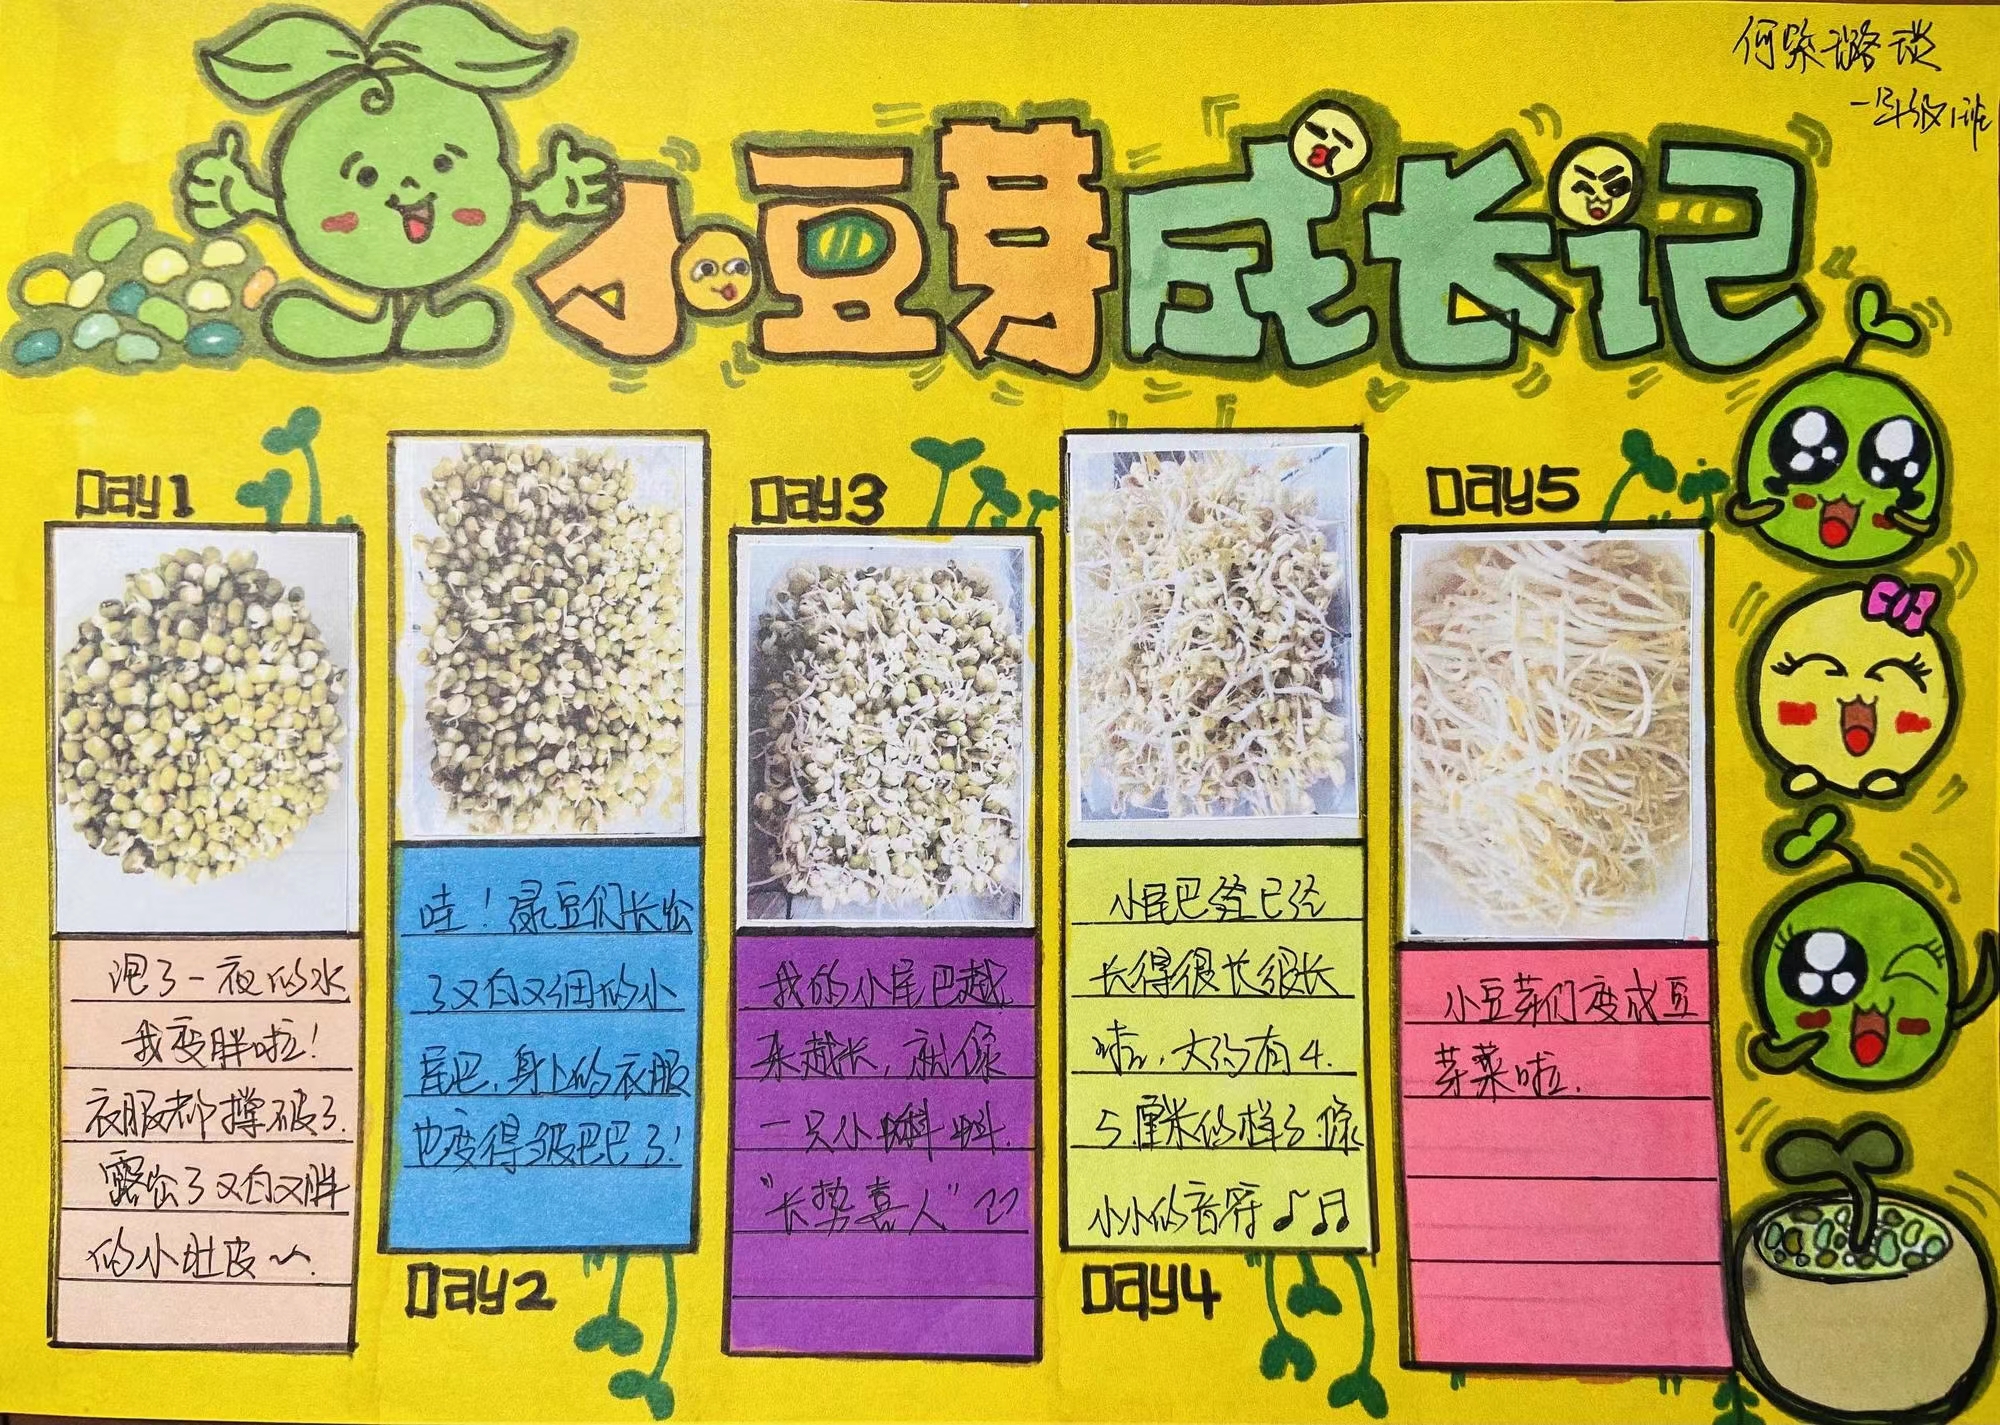 小豆芽成长记
一年级1班
Day1
泡了一夜的水
我变胖啦！
衣服都撑破了.
露出了又白又胖
的小肚皮～.
Day2
哇！绿豆们长出
了又白又细的小
尾巴，身上的衣服
也变得皱巴巴了！
Day3
我的小尾巴越
来越长，就像
一只小蝌蚪.
“长势喜人”
Day4
小尾巴已经
长得很长很长
啦，大约有4.
5厘米的样子.像
小小的音符♪♫
Day5
小豆芽们变成豆
芽菜啦.